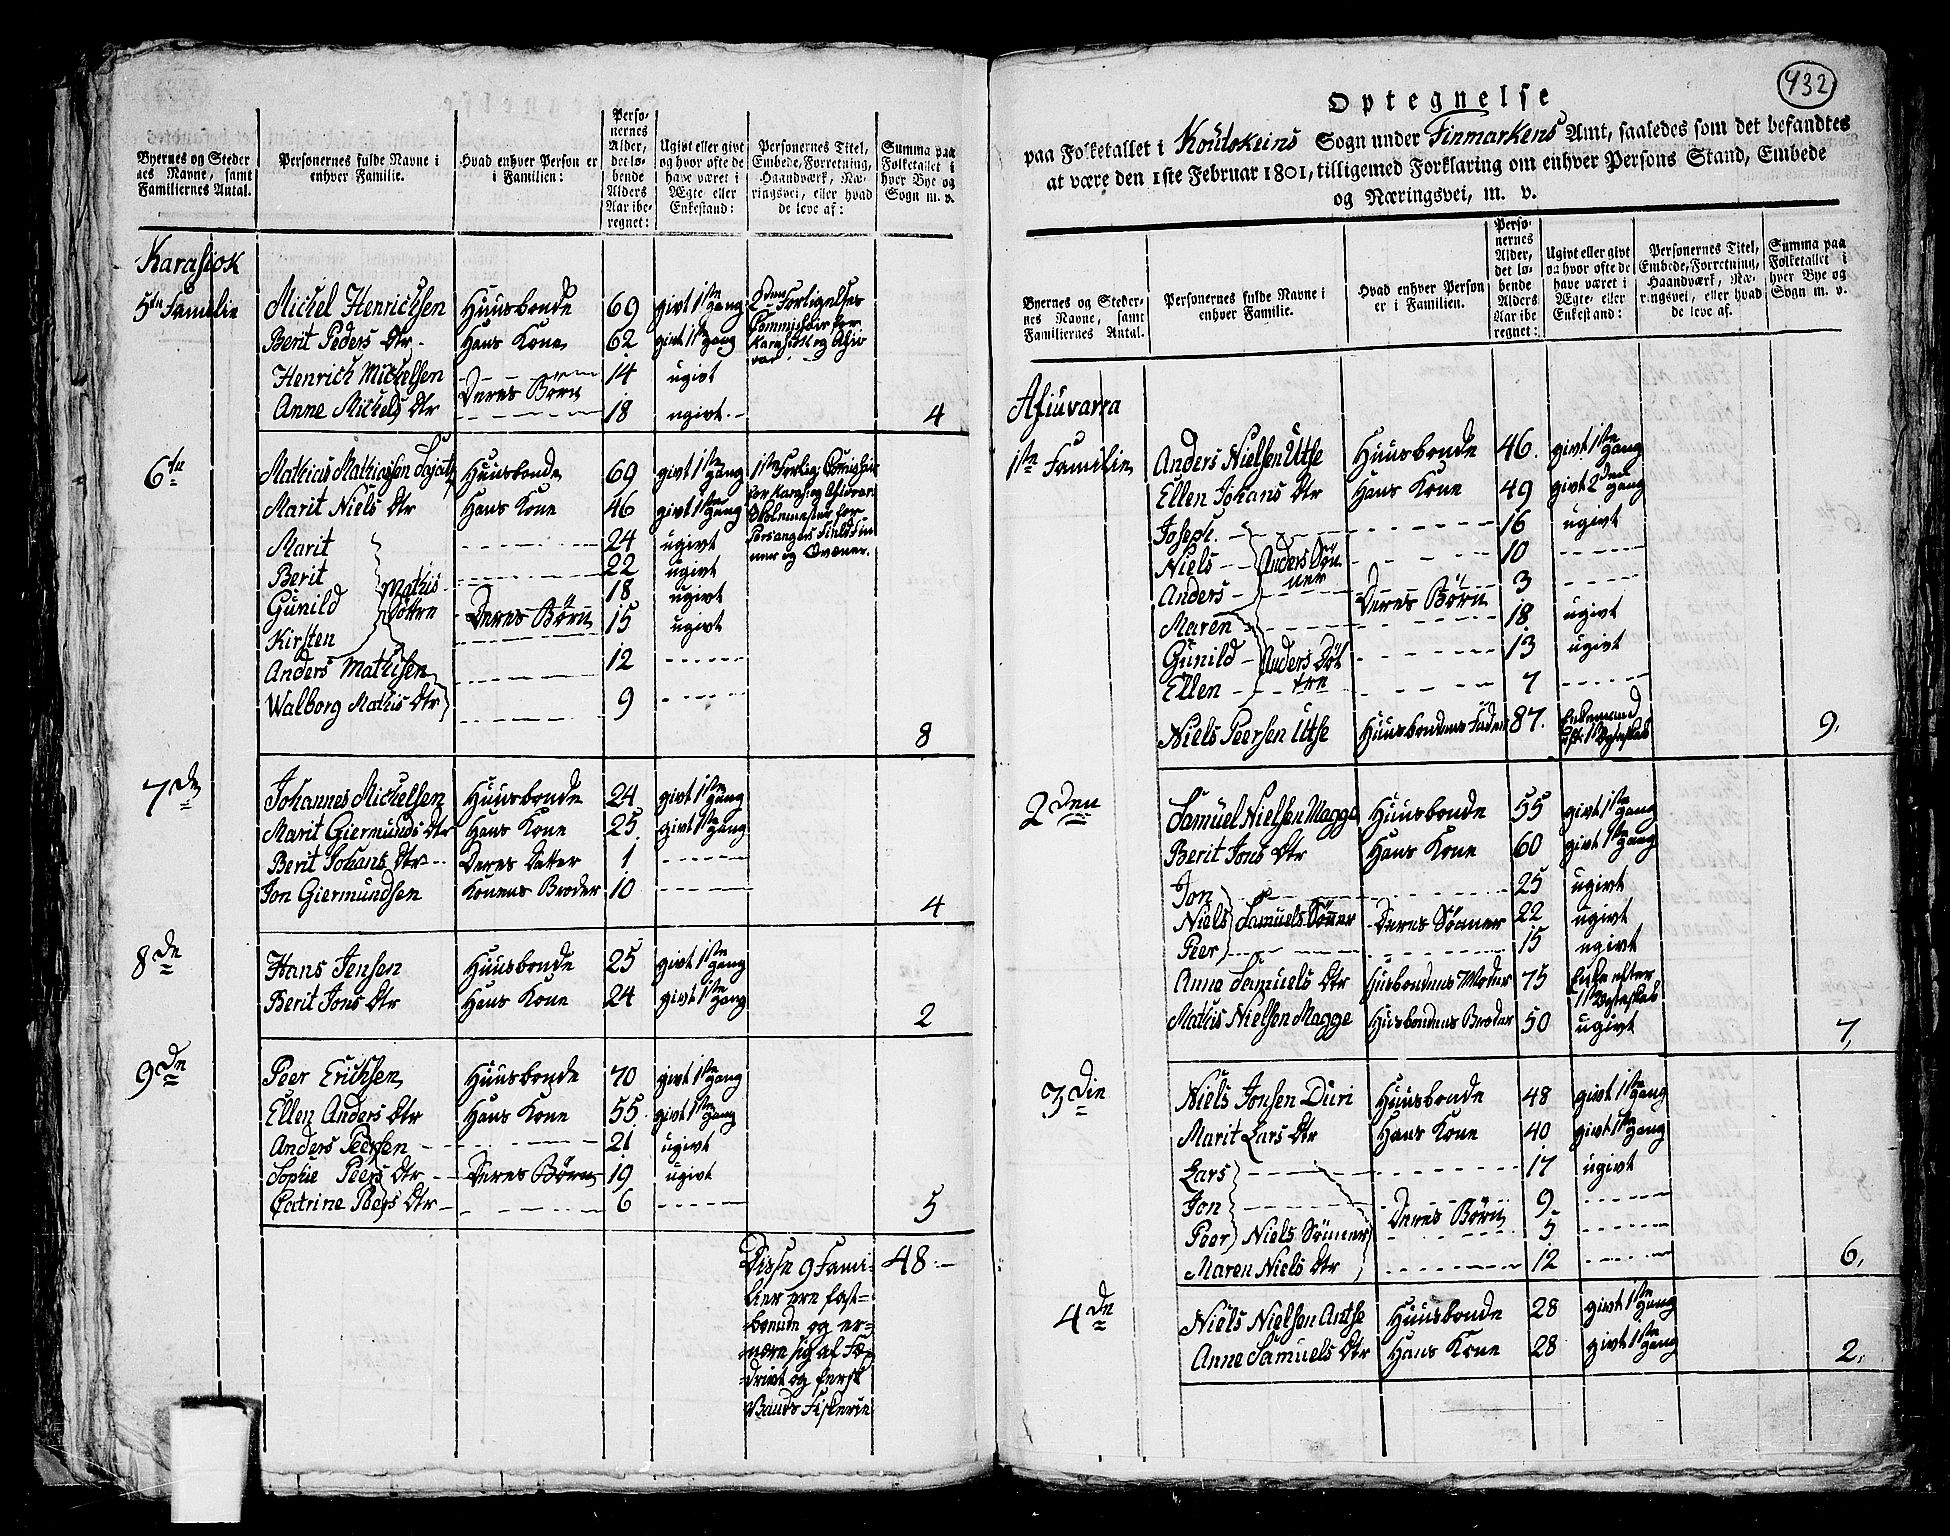 Byernes og Steder nes Navne, samt Familiernes Antal. | Personernes fulde Navne i enhver Familie. | Hvad enhver Person er i Familien: | Personernes Alder, det løbende Alders Aar iberegnet: | Ugivt eller givt og hvor ofte de have været i Ægte eller Enkestand: | Personernes Titel, Embede, Forretning, Haandværk, Næringsvei, eller hvad de leve af: | Summa paa Folketallet i hver Bye og Sogn m. v.
Karasiok
5te Familie | Michel Henrichsen | Huusbonde | 69 | givt 1ste gang | 2den Forligelses
Berit Peders Dtr | Hans Kone | 62 | givt 1ste gang | Commissair for Karasiok og
Henrich Michelsen | 14 | ugivt
Deres Børn
Anne Michels Dtr | 18 | ugivt | 4
6te | Mathias Mathiassen | Huusbonde | 69 | givt 1ste gang
Marit Niels Dtr | Hans Kone | 46 | givt 1ste gang
Marit | 24 | ugivt
Berit | 22 | ugivt
Gunild | Mathis Døtre | 18 | ugivt
Kirsten | Deres Børn | 15 | ugivt
Anders Mathisen | 12
Walborg Mathis Dtr | 9
8
7de | Johannes Michelsen | Huusbonde | 24 | givt 1ste gang
Marit Giermunds Dtr | Hans Kone | 25 | givt 1ste gang
Berit Johans Dtr | Deres Datter | 1
Jon Giermundsen | Konens Broder | 10 | 4
8de | Hans Jensen | Huusbonde | 25 | givt 1ste gang
Berit Jons Dtr | Hans Kone | 24 | givt 1ste gang
2
9de | Peer Erichsen | Huusbonde | 70 | givt 1ste gang
Ellen Anders Dtr | Hans Kone | 55 | givt 1ste gang
Anders Peersen | 21 | ugivt
Sophie Peers Dtr | Deres Børn | 19 | ugivt
Catrine Peers Dtr | 6 | 5
Disse 9 Fami- | 48
lier ere fast-
boende og er-
nære sig af Fæ-
drivt og fersk
Vands Fiskerie
432
Optegnelse
paa Folketallet i Koutokeins Sogn under Finmarkens Amt, saaledes som det befandtes
at være den 1ste Februar 1801, tilligemed Forklaring om enhver Persons Stand, Embede
og Næringsvei, m. v.
Byernes og Stedernes Navne, samt Familiernes Antal. | Personernes fulde Navne i enhver Familie. | Hvad enhver Person er i Familien. | Personernes Alder, det løbende Alders Aar iberegnet: | Ugivt eller givt og hvor ofte de have været i Ægte- eller Enkestand: | Personernes Titel, Embede, Forretning, Haandværk, Næringsvei, eller hvad de leve af. | Summa paa Folketallet i hver Bye og Sogn m. v.
Afiuvarra
1ste Familie | Anders Nielsen Utse | Huusbonde | 46 | givt 1ste gang
Ellen Johans Dtr | Hans Kone | 49 | givt 2den gang
Joseph | 16 | ugivt
Niels | Anders Sønner | 10
Anders | 3
Deres Børn
Maren | 18 | ugivt
Gunild | Anders Døttre | 13 | ugivt
Ellen | 7
Niels Peersen Utse | Huusbondens Fader | 87 | Enkemand | 9
2den | Samuel Nielsen Magge | Huusbonde | 55 | givt 1ste gang
Berit Jons Dtr | Hans Kone | 60 | givt 1ste gang
Jon | 25 | ugivt
Niels | Samuels Sønner | Deres Sønner | 22 | ugivt
Peer | 15 | ugivt
Anne Samuels Dtr | Husbondens Moder | 75 | Enke efter 1ste
Mathis Nielsen Magge | Husbondens Broder | 50 | ugivt | 7
3die | Niels Jonsen Duri | Huusbonde | 48 | givt 1ste gang
Marit Lars Dtr | Hans Kone | 40 | givt 1ste gang
Lars | 17 | ugivt
Jon | Deres Børn | 9
Peer | Niels Sønner | 5
Maren Niels Dtr | 12 | 6
4de | Niels Nielsen Antse | Huusbonde | 28 | givt 1ste gang
Anne Samuels Dtr | Hans Kone | 28 | givt 1ste gang | 2